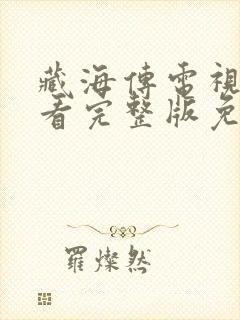 藏海傳電視
看完整版免
羅燦然